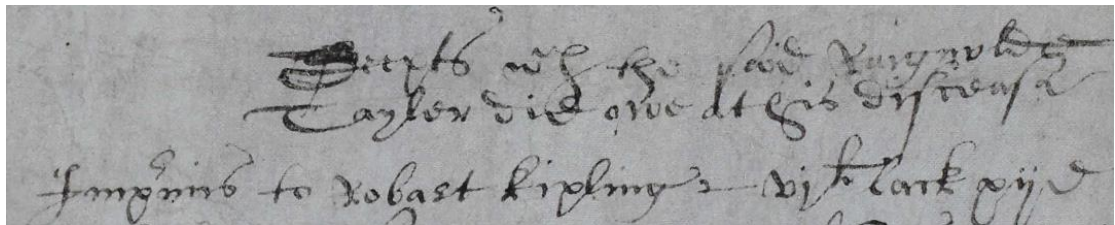 Deepts wch the said Raignold
Tayler did owe at his disscease
Imprimis to Robart Kipling vili lack xijd